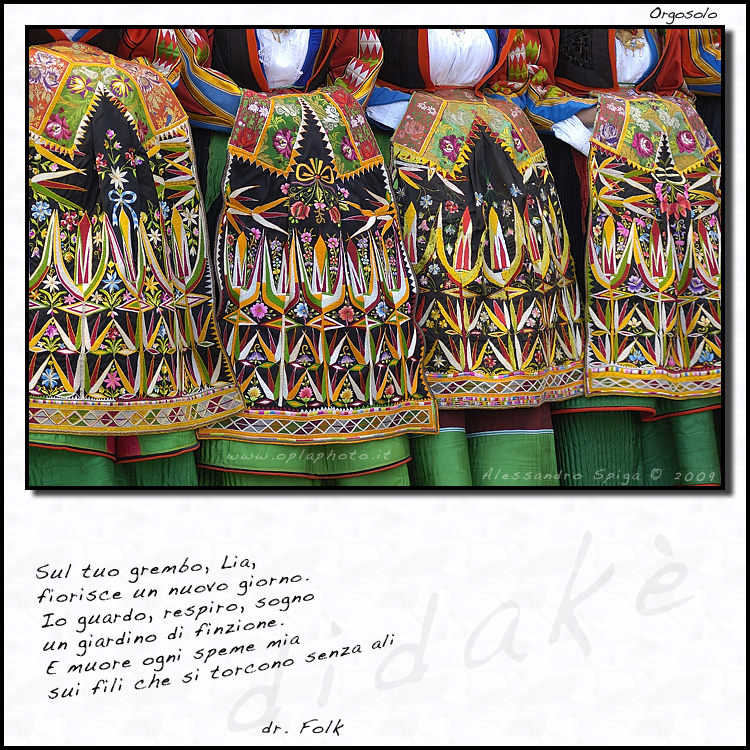 Orgosolo
www.oplaphoto.it
Alessandro Spiga © 2009
Sul tuo grembo, Lia,
fiorisce un nuovo giorno.
Io guardo, respiro, sogno
un giardino di finzione.
E muore ogni speme mia
sui fili che si torcono senza ali
didakè
dr. Folk